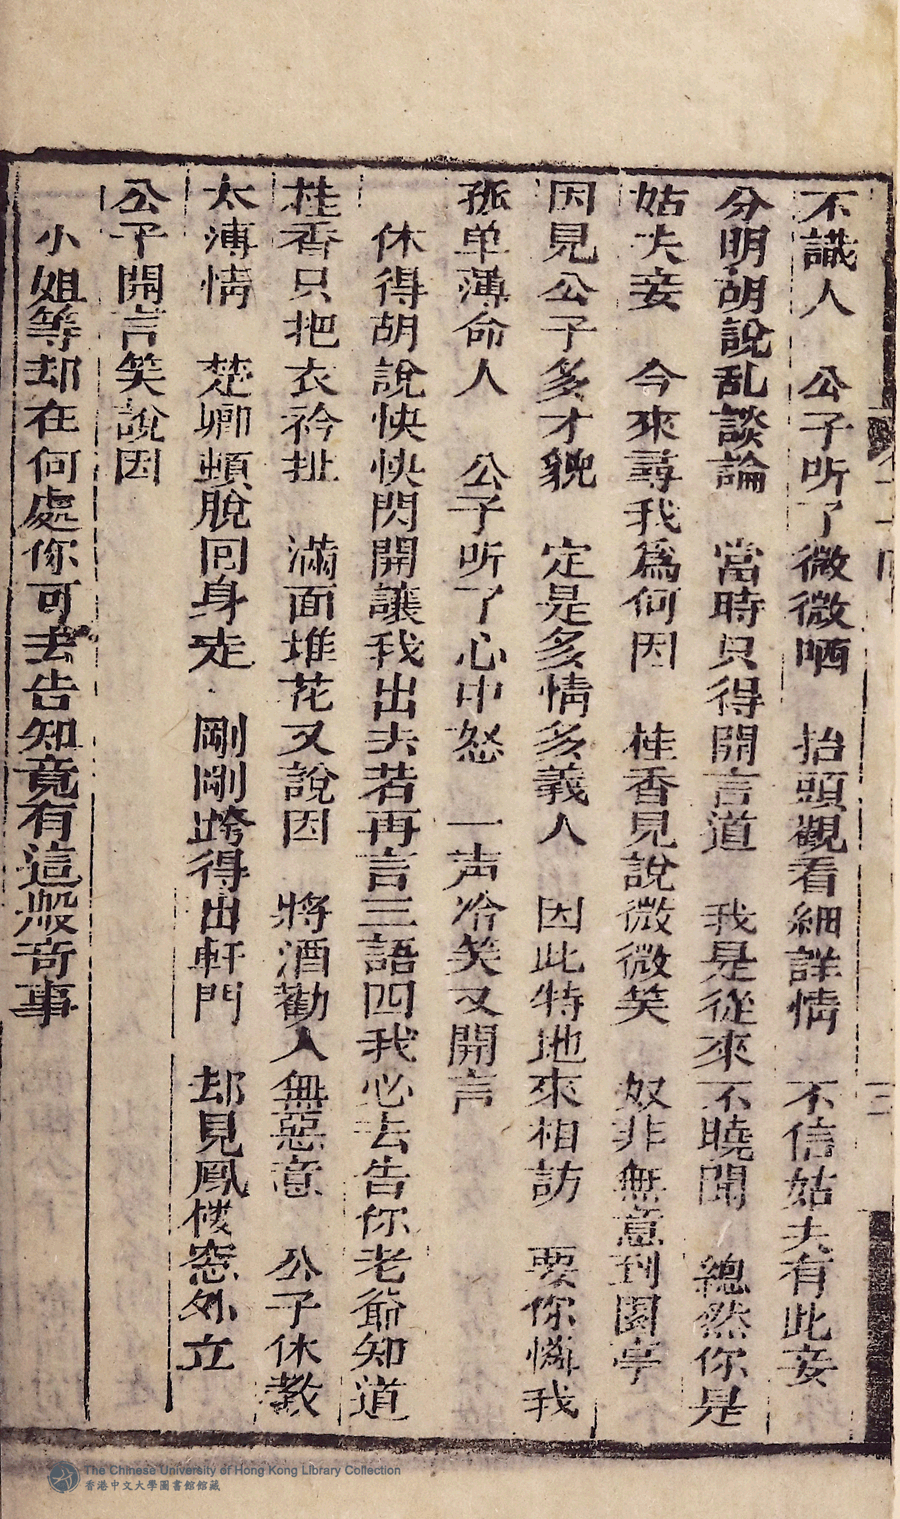 不識人　公子听了微微哂　抬頭觀看細詳情　不信姑夫有此妾
分明胡說乱談論　當時只得開言道　我是從來不曉聞　總然你是
姑夫妾　今來尋我爲何因　桂香見說微微笑　奴非無意到園亭
因見公子多才貌　定是多情多義人　因此特地來相訪　要你憐我
孤单薄命人　公子听了心中怒　一声冷笑又開言
休得胡說快快閃開讓我出去若再言三語四我必去告你老爺知道
桂香只把衣衿扯　滿面堆花又說因　將酒勸人無惡意　公子休教
太薄情　楚卿頓脫回身走　剛剛跨得出軒門　却見鳳樓窓外立
公子開言笑說因
小姐等却在何處你可去告知竟有這般奇事
The Chinese University of Hong Kong Library Collection
香港中文大學圖書館館藏